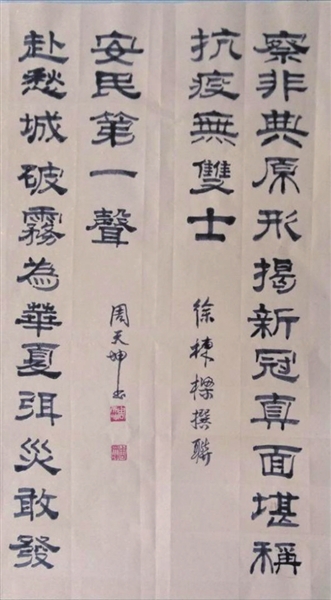 察非典原形揭新冠真面堪稱
抗疫無雙士
徐棟樑撰聯
赴愁城破霧為華夏弭災敢發
安民第一聲
周天坤书